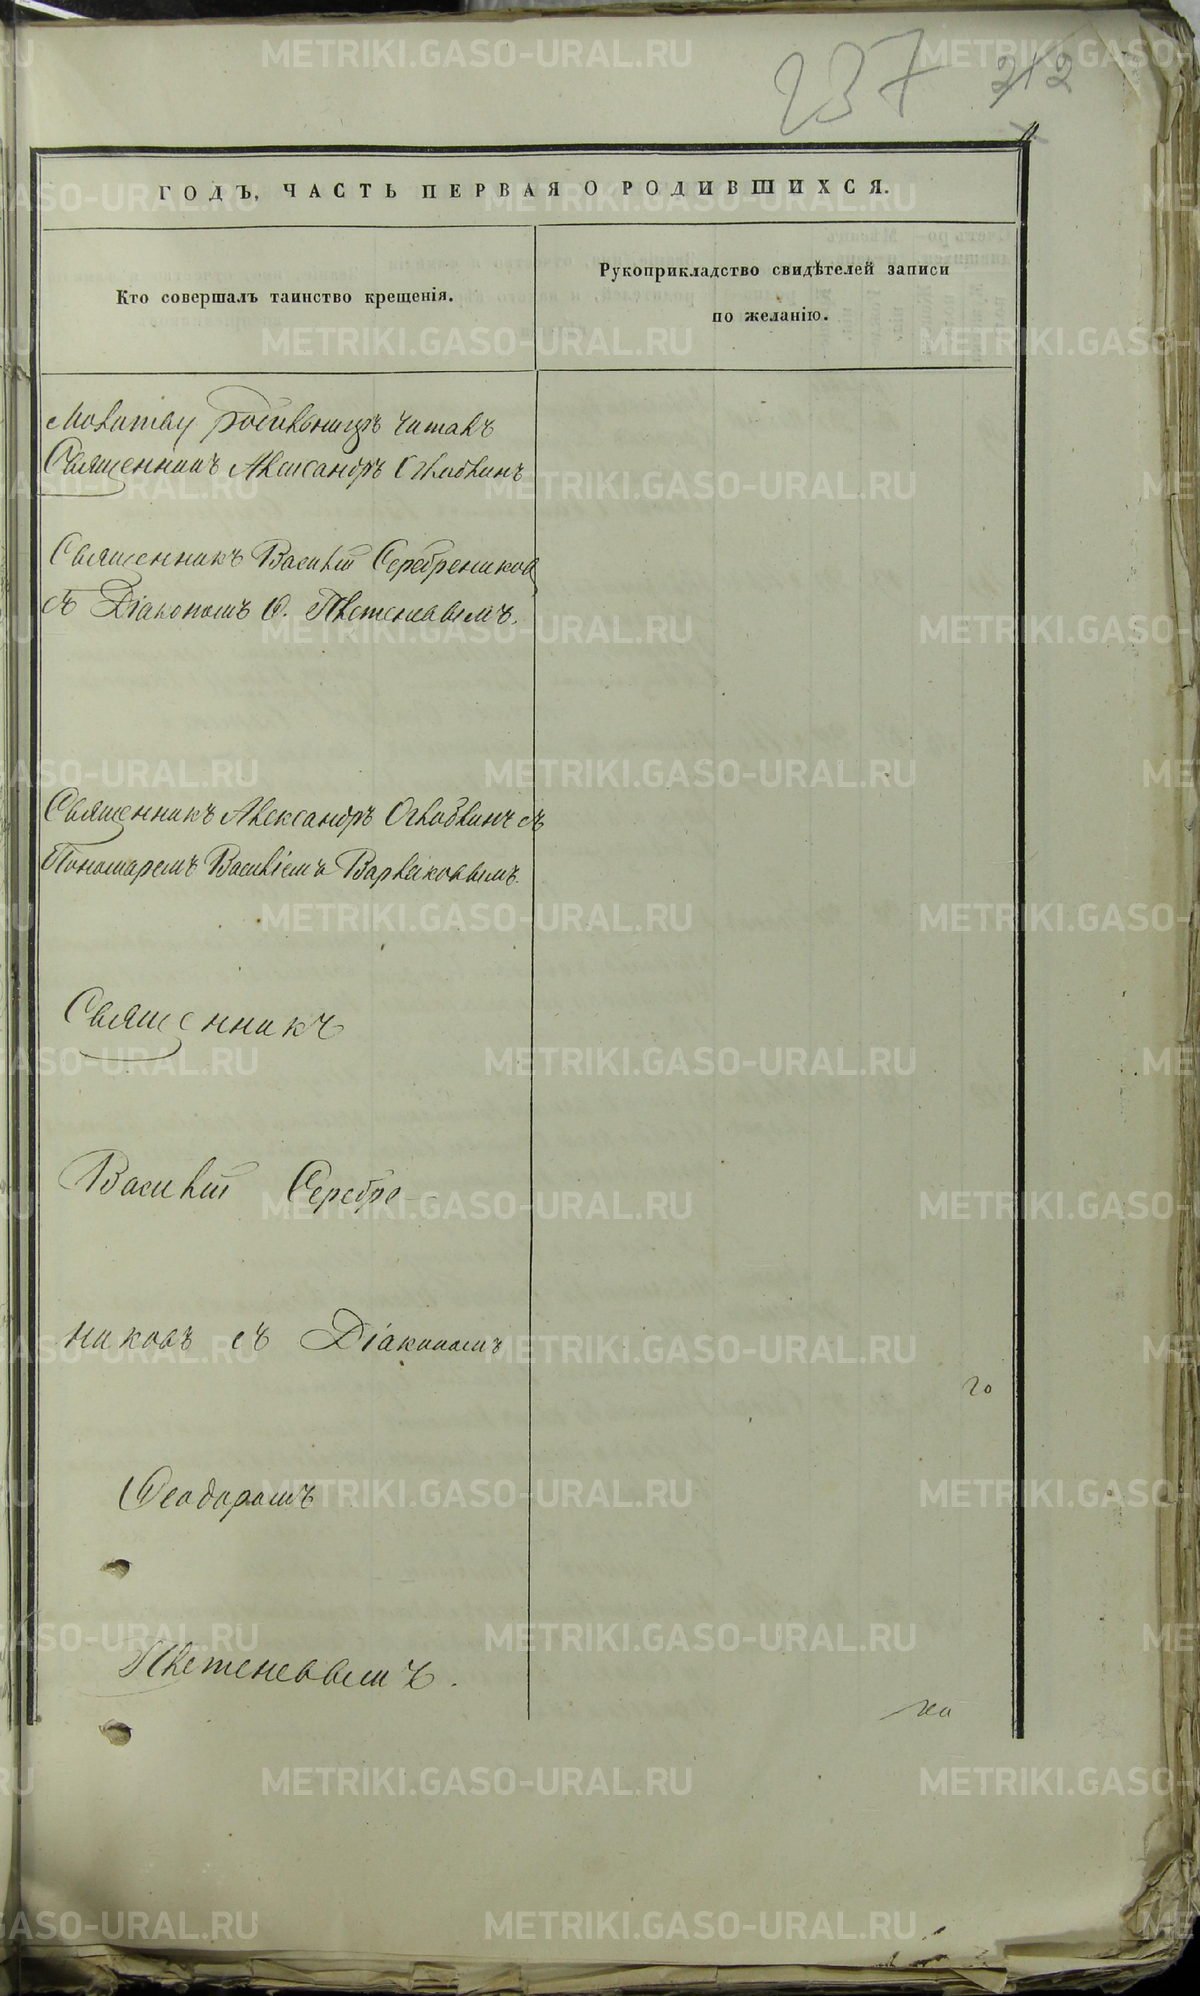 237 212
ГОДЪ, ЧАСТЬ ПЕРВАЯ О РОДИВШИХСЯ.
Кто совершалъ таинство крещенія.
Рукоприкладство свидѣтелей записи
по желанію.
Молитву родильницѣ читалъ
Священникъ Александръ Оглоблинъ
Священникъ Василій Серебрениковъ
съ Діакономъ Ѳ. Плетеневымъ.
Священникъ Александръ Оглоблинъ съ
Пономаремъ Василіемъ
Священникъ
Василій Серебре-
никовъ съ Діакономъ
Ѳеодоромъ
Плетеневымъ.
METRIKI.GASO-URAL.RU